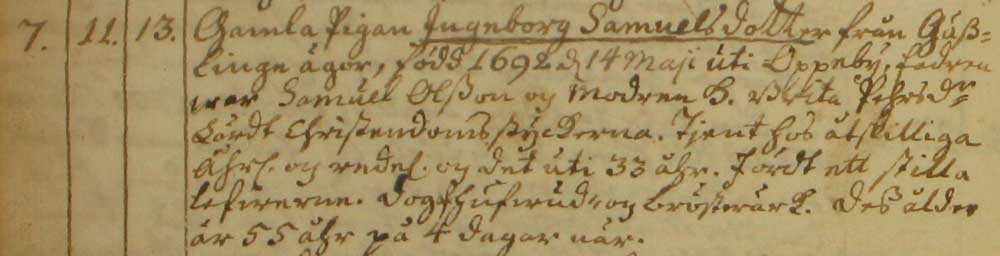 7. 11. 13. Gamla Pigan Ingeborg Samuelsdotter från Guß-
linge ägor, född 1692 d 14 Maji uti Oppeby, fadren
war Samuel Olßon og Modren H. Brita Pehrsdr
Lärdt Christendomsstyckerna. Tjent hos åtskilliga
og det uti 33 åhr. Fördt ett stilla
lefwerne. Dog af hufwud- og bröstwärk. Des ålder
är 55 åhr på 4 dagar när.